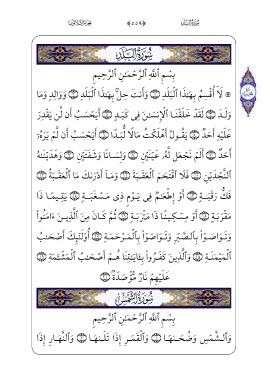 سُورَةُ البَلَدِ
بِسْمِ ٱللَّهِ ٱلرَّحْمَٰنِ ٱلرَّحِيمِ
۞ لَآ أُقْسِمُ بِهَٰذَا ٱلْبَلَدِ ١ وَأَنتَ حِلٌّۢ بِهَٰذَا ٱلْبَلَدِ ٢ وَوَالِدٍ وَمَا
وَلَدَ ٣ لَقَدْ خَلَقْنَا ٱلْإِنسَٰنَ فِى كَبَدٍ ٤ أَيَحْسَبُ أَن لَّن يَقْدِرَ
عَلَيْهِ أَحَدٌ ٥ يَقُولُ أَهْلَكْتُ مَالًا لُّبَدًا ٦ أَيَحْسَبُ أَن لَّمْ يَرَهُۥٓ
أَحَدٌ ٧ أَلَمْ نَجْعَل لَّهُۥ عَيْنَيْنِ ٨ وَلِسَانًا وَشَفَتَيْنِ ٩ وَهَدَيْنَٰهُ
ٱلنَّجْدَيْنِ ١٠ فَلَا ٱقْتَحَمَ ٱلْعَقَبَةَ ١١ وَمَآ أَدْرَىٰكَ مَا ٱلْعَقَبَةُ ١٢
فَكُّ رَقَبَةٍ ١٣ أَوْ إِطْعَٰمٌ فِى يَوْمٍ ذِى مَسْغَبَةٍ ١٤ يَتِيمًا ذَا
مَقْرَبَةٍ ١٥ أَوْ مِسْكِينًا ذَا مَتْرَبَةٍ ١٦ ثُمَّ كَانَ مِنَ ٱلَّذِينَ ءَامَنُوا۟
وَتَوَاصَوْا۟ بِٱلصَّبْرِ وَتَوَاصَوْا۟ بِٱلْمَرْحَمَةِ ١٧ أُو۟لَٰٓئِكَ أَصْحَٰبُ
ٱلْمَيْمَنَةِ ١٨ وَٱلَّذِينَ كَفَرُوا۟ بِـَٔايَٰتِنَا هُمْ أَصْحَٰبُ ٱلْمَشْـَٔمَةِ ١٩
عَلَيْهِمْ نَارٌ مُّؤْصَدَةٌۢ ٢٠
سُورَةُ الشَّمْسِ
بِسْمِ ٱللَّهِ ٱلرَّحْمَٰنِ ٱلرَّحِيمِ
وَٱلشَّمْسِ وَضُحَىٰهَا ١ وَٱلْقَمَرِ إِذَا تَلَىٰهَا ٢ وَٱلنَّهَارِ إِذَا